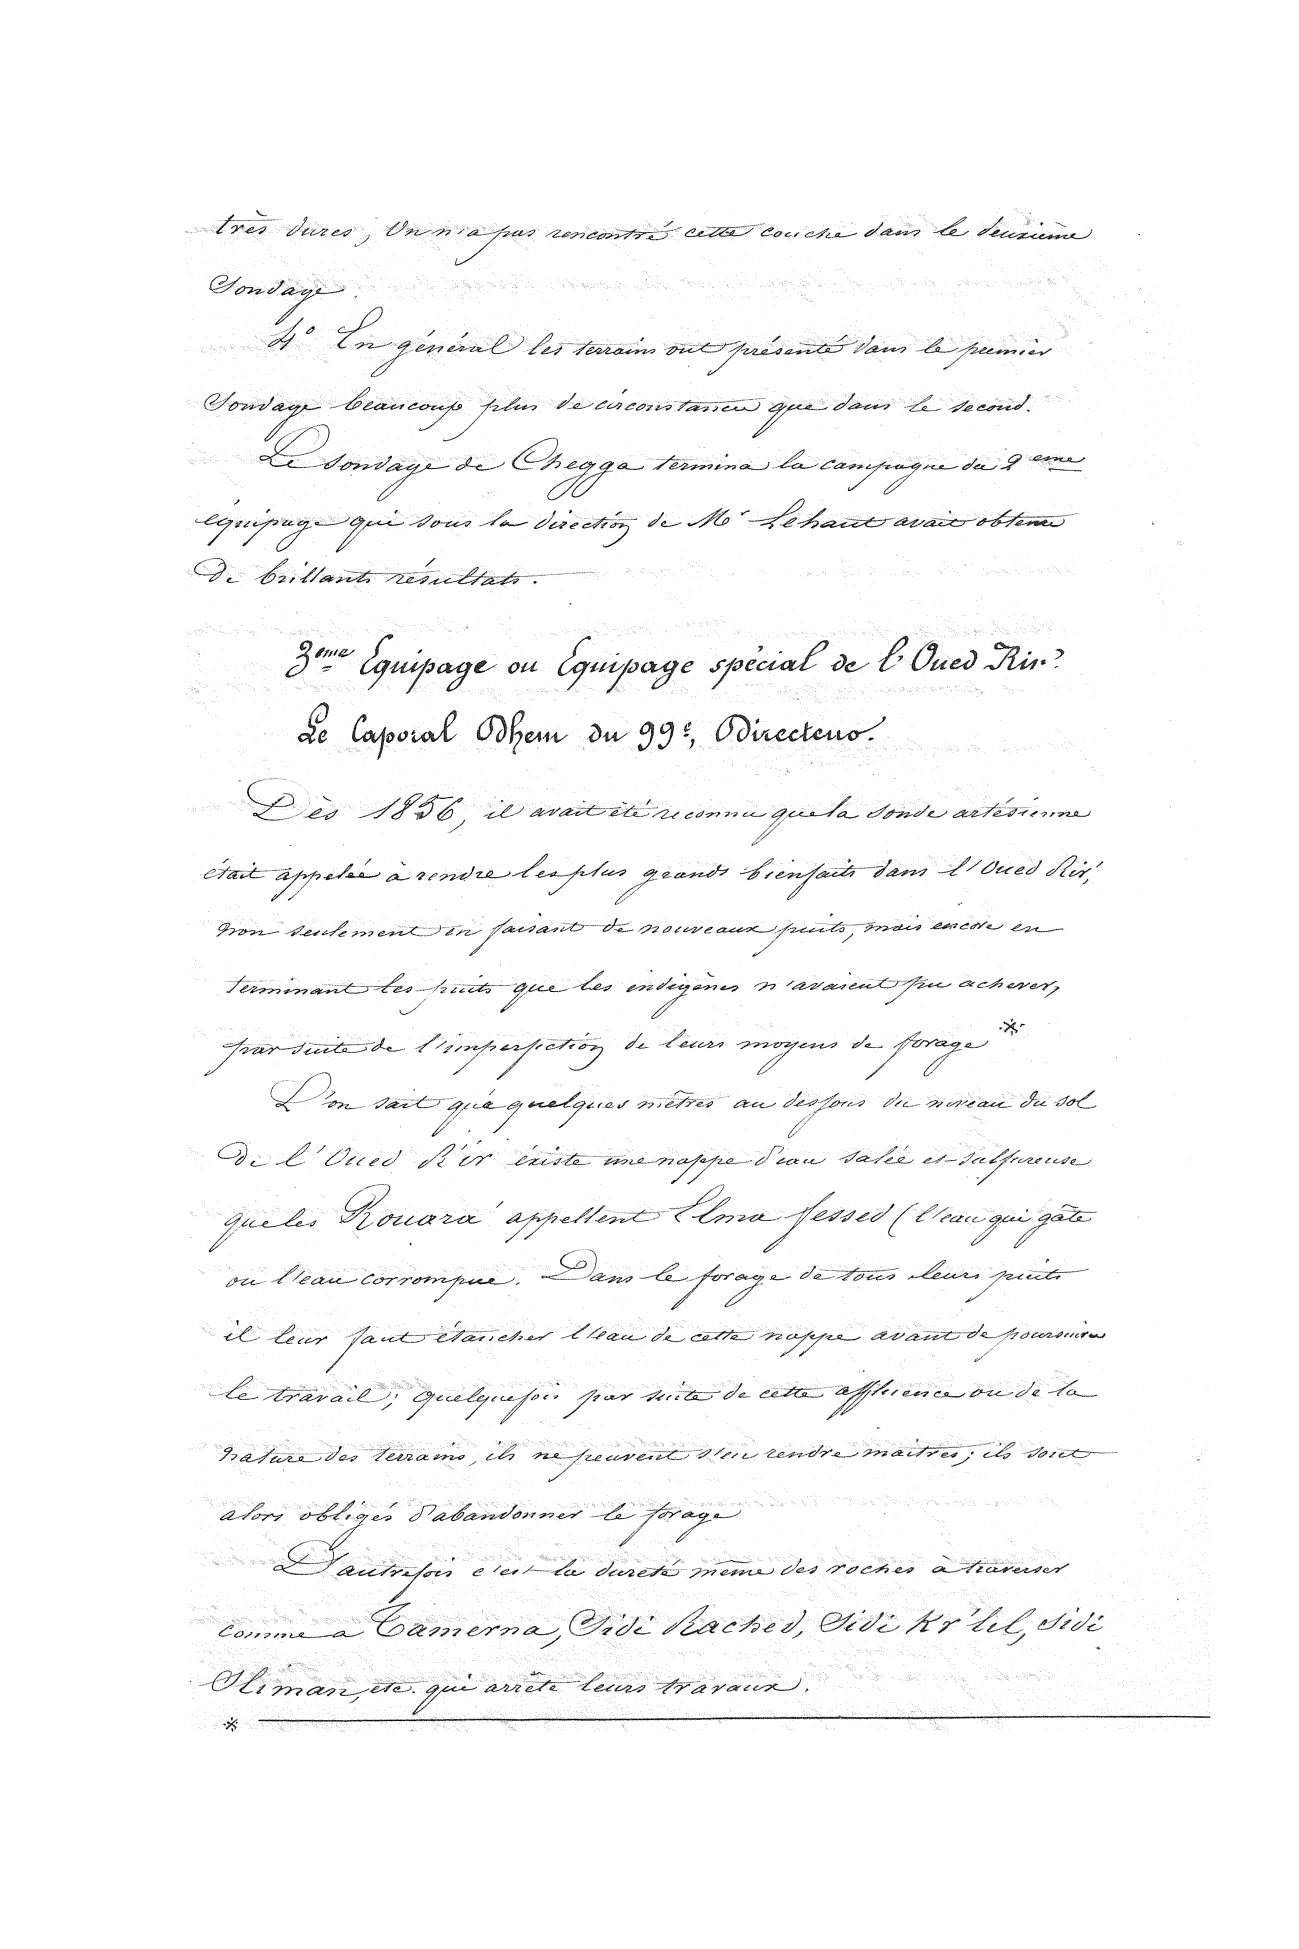 très dures, On n'a pas rencontré cette couche dans le deuxième
Sondage.
4° En général les terrains ont présenté dans le premier
Sondage beaucoup plus de circonstances que dans le second.
Le sondage de Chegga termina la campagne du 2eme
équipage qui sous la direction de Mr Lehaut avait obtenu
de brillants résultats.
3eme Equipage ou Equipage spécial de l'Oued Rir'.
Le Caporal Dhem du 99e, Directeur.
Dès 1856, il avait été reconnu que la sonde artésienne
était appelée à rendre les plus grands bienfaits dans l'Oued Rir',
non seulement en faisant de nouveaux puits, mais encore en
terminant les puits que les indigènes n'avaient pu achever,
par suite de l'imperfection de leurs moyens de forage *
L'on sait qu'a quelques mètres au dessous du niveau du sol
de l'Oued R'ir existe une nappe d'eau salée et sulfureuse
que les Rouara' appellent Elma fessed (l'eau qui gâte
ou l'eau corrompue. Dans le forage de tous leurs puits
il leur faut étancher l'eau de cette nappe avant de poursuivre
le travail; quelquefois par suite de cette affluence ou de la
nature des terrains, ils ne peuvent s'en rendre maitres; ils sont
alors obligés d'abandonner le forage
D'autrefois c'est la dureté même des roches à traverser
comme a Tamerna, Sidi Rached, Sidi Kr'lil, Sidi
Sliman, etc. qui arrête leurs travaux.
*